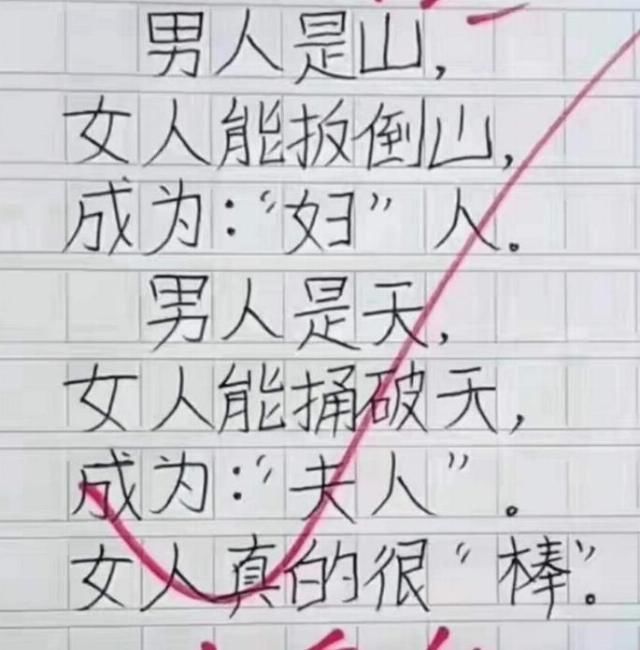 男人是山,
女人能扳倒山,
成为:“妇”人。
男人是天,
女人能捅破天,
成为:“夫人”。
女人真的很“棒”。